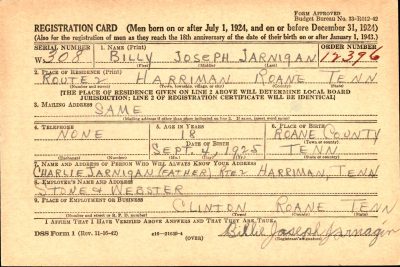 FORM APPROVED
Budget Bureau No. 33-R012-42
REGISTRATION CARD (Men born on or after July 1, 1924, and on or before December 31, 1924)
(Also for the registration of men as they reach the 18th anniversary of the date of their birth on or after January 1, 1943.)
SERIAL NUMBER
1. NAME (Print)
ORDER NUMBER
W 308 BILLY JOSEPH JARNIGAN 12396
(First) (Middle) (Last)
2. PLACE OF RESIDENCE (Print)
ROUTE 2 HARRIMAN ROANE TENN
(Number and street) (Town, township, village or city) (County) (State)
[THE PLACE OF RESIDENCE GIVEN ON LINE 2 ABOVE WILL DETERMINE LOCAL BOARD
JURISDICTION; LINE 2 OF REGISTRATION CERTIFICATE WILL BE IDENTICAL]
3. MAILING ADDRESS
SAME
[Mailing address if other than place indicated on line 2. If same, insert word same]
4. TELEPHONE
5. AGE IN YEARS
6. PLACE OF BIRTH
NONE 18 ROANE COUNTY
DATE OF BIRTH
(Town or county)
SEPT. 4, 1925 TENN
(Exchange) (Number) (Mo.) (Day) (Yr.) (State or country)
7. NAME AND ADDRESS OF PERSON WHO WILL ALWAYS KNOW YOUR ADDRESS
CHARLIE JARNIGAN (FATHER) RTE 2 HARRIMAN, TENN
8. EMPLOYER'S NAME AND ADDRESS
STONE & WEBSTER
9. PLACE OF EMPLOYMENT OR BUSINESS
CLINTON ROANE TENN
(Number and street or R. F. D. number) (Town) (County) (State)
I AFFIRM THAT I HAVE VERIFIED ABOVE ANSWERS AND THAT THEY ARE TRUE.
DSS Form 1 (Rev. 11-16-42)
(OVER)
Billie Joseph Jarnagin
(Registrant's signature)